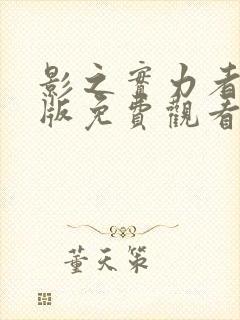 影之實力者
版免費觀看
董天策